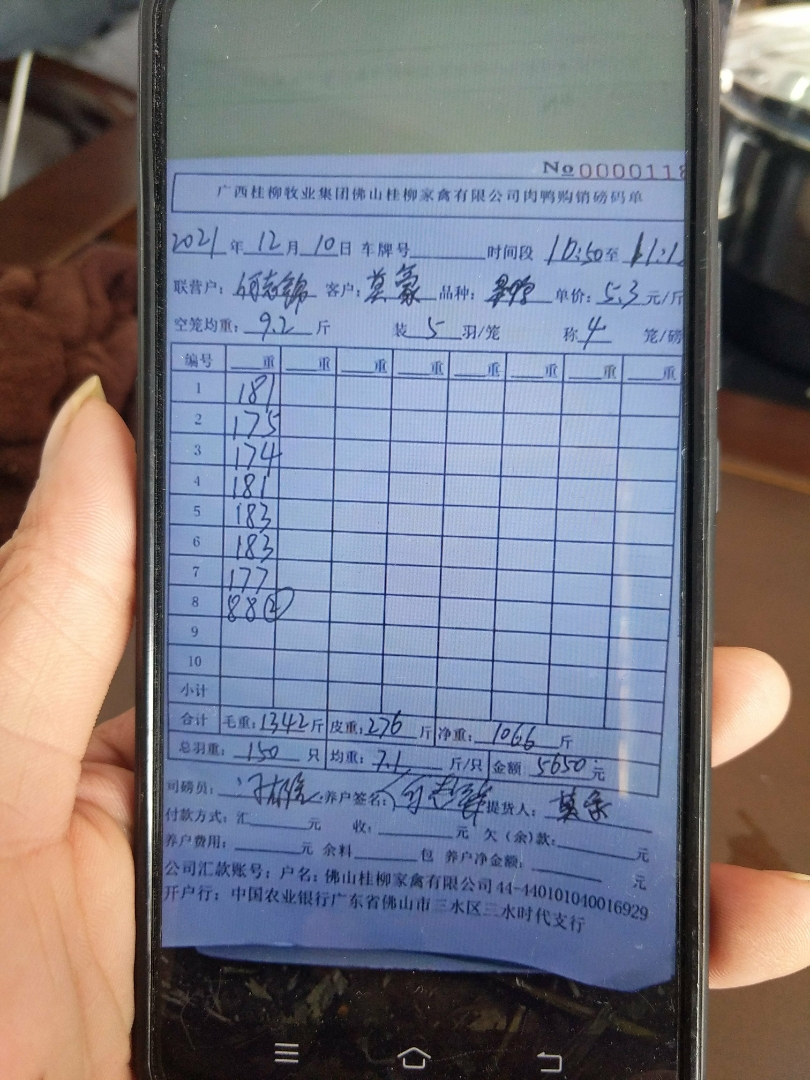 No 0000118
广西桂柳牧业集团佛山桂柳家禽有限公司肉鸭购销磅码单
2021年12月10日 车牌号 时间段 10:50至11:1
联营户: 何志锦 客户: 莫豪 品种: 单价: 5.3元/斤
空笼均重: 9.2斤 装5羽/笼 称4笼/磅
编号 重 重 重 重 重 重 重 重
1 181
2 175
3 174
4 181
5 183
6 183
7 177
8 88②
9
10
小计
合计 毛重: 1342斤 皮重: 276斤 净重: 1066斤
总羽重: 150只 均重: 7.1斤/只 金额: 5650元
司磅员: 养户签名: 何志锦 提货人: 莫豪
付款方式: 汇 元 收: 元 欠(余)款: 元
养户费用: 元 余料 包 养户净金额: 元
公司汇款账号: 户名: 佛山桂柳家禽有限公司44-440101040016929
开户行: 中国农业银行广东省佛山市三水区三水时代支行